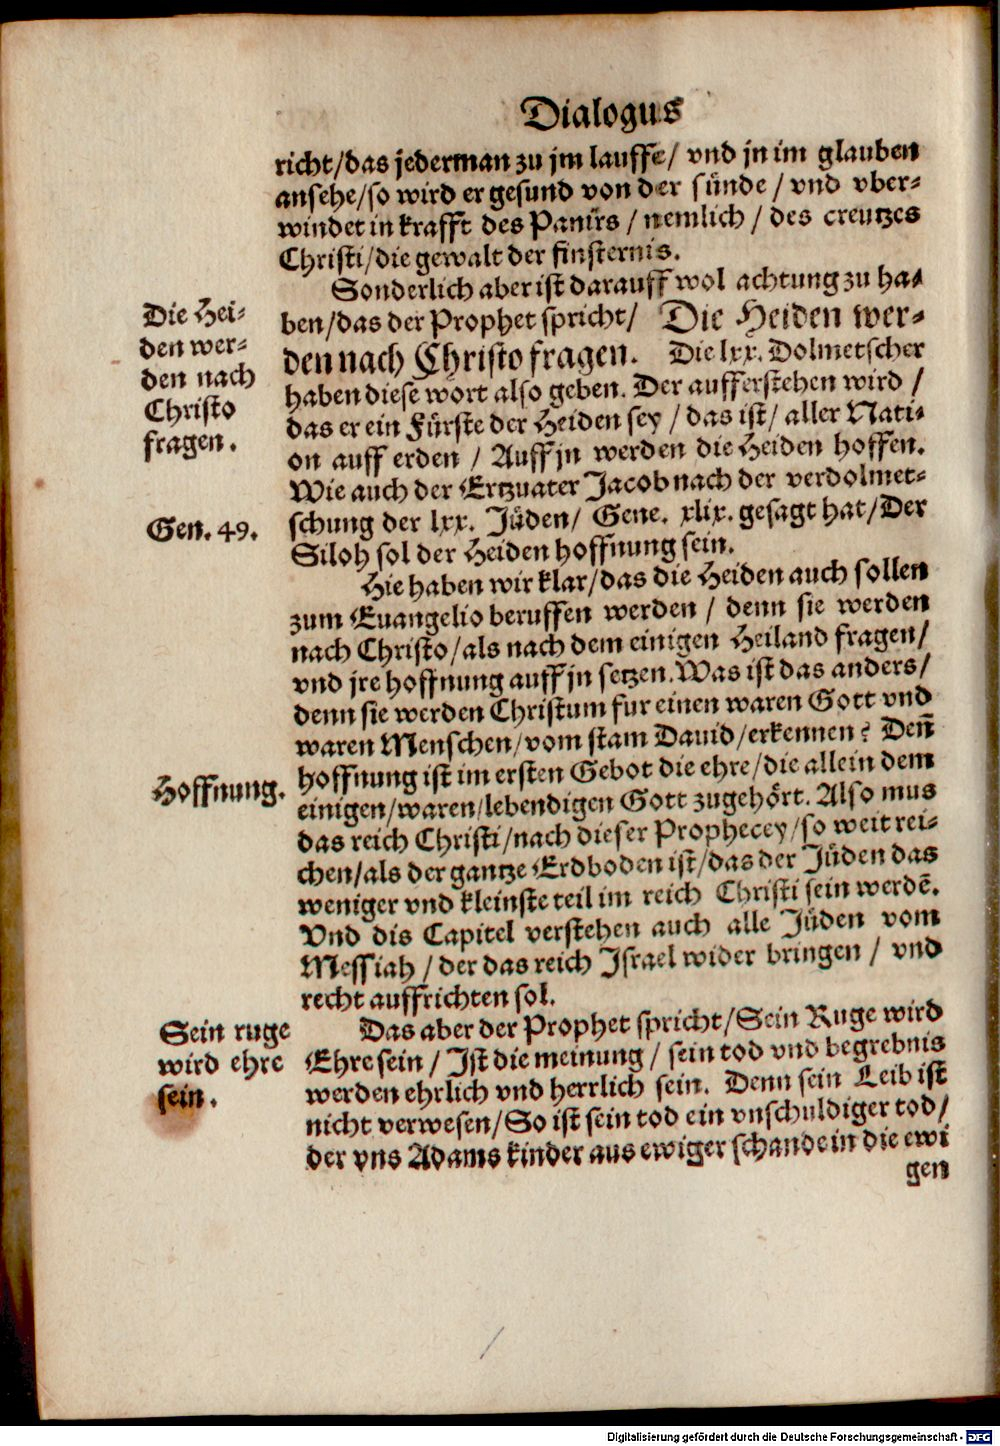 Dialogus
richt/das jederman zu jm lauffe/ vnd jn im glauben
ansehe/so wird er gesund von der sünde / vnd vber-
windet in krafft des Panirs / nemlich / des creutzes
Christi/die gewalt der finsternis.
Sonderlich aber ist darauff wol achtung zu ha-
ben/das der Prophet spricht/ Die Heiden wer-
den nach Christo fragen. Die lxx. Dolmetscher
haben diese wort also geben. Der aufferstehen wird /
das er ein Fürste der Heiden sey / das ist/ aller Nati-
on auff erden / Auff jn werden die Heiden hoffen.
Wie auch der Ertzuater Jacob nach der verdolmet-
schung der lxx. Jüden/ Gene. xlix. gesagt hat/Der
Siloh sol der Heiden hoffnung sein.
Hie haben wir klar/das die Heiden auch sollen
zum Euangelio beruffen werden / denn sie werden
nach Christo/als nach dem einigen Heiland fragen/
vnd jre hoffnung auff jn setzen. Was ist das anders/
denn sie werden Christum fur einen waren Gott vnd
waren Menschen/vom stam Dauid/erkennen? Deñ
hoffnung ist im ersten Gebot die ehre/die allein dem
einigen/waren/lebendigen Gott zugehört. Also mus
das reich Christi/nach dieser Prophecey/so weit rei-
chen/als der gantze Erdboden ist/das der Jüden das
weniger vnd kleinste teil im reich Christi sein werdē.
Vnd dis Capitel verstehen auch alle Jüden vom
Messiah / der das reich Israel wider bringen / vnd
recht auffrichten sol.
Das aber der Prophet spricht/Sein Ruge wird
Ehre sein / Ist die meinung / sein tod vnd begrebnis
werden ehrlich vnd herrlich sein. Denn sein Leib ist
nicht verwesen/So ist sein tod ein vnschuldiger tod/
der vns Adams kinder aus ewiger schande in die ewi
gen
Die Hei-
den wer-
den nach
Christo
fragen.
Gen. 49.
Hoffnung.
Sein ruge
wird ehre
sein.
Digitalisierung gefördert durch die Deutsche Forschungsgemeinschaft - DFG